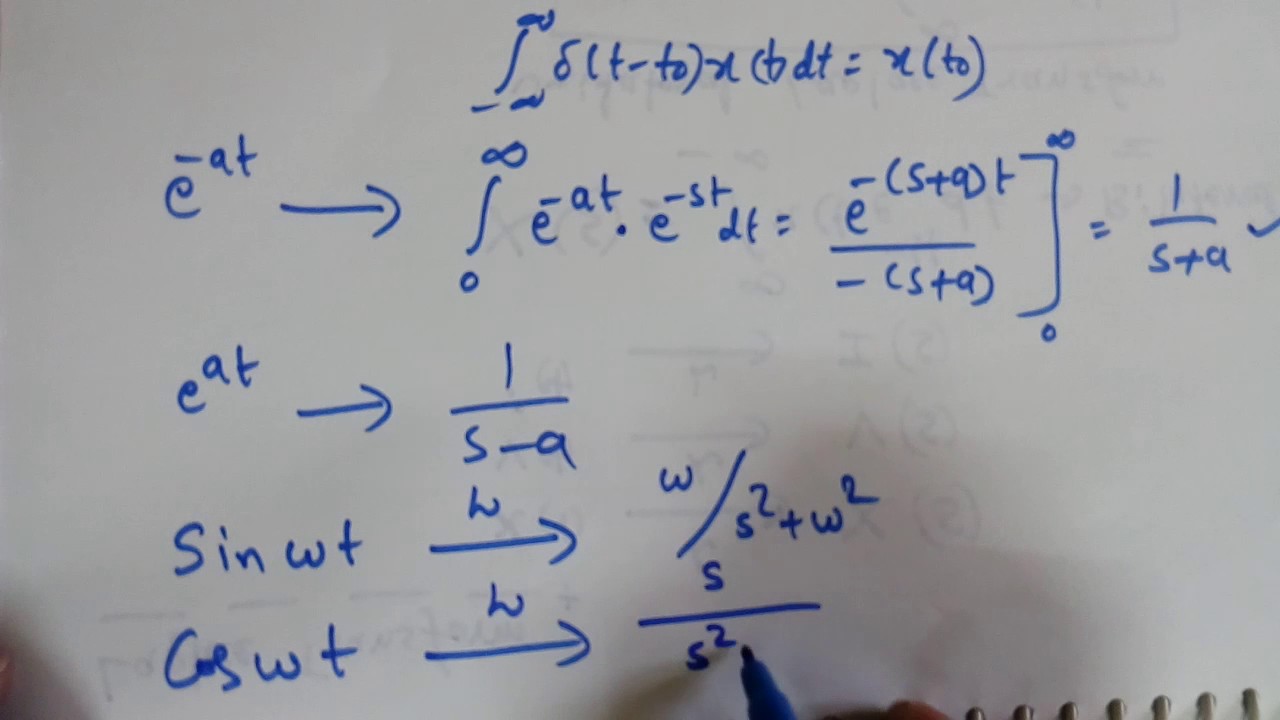 ∫_{-∞}^{∞} δ(t-t0) x(t) dt = x(t0)
e^{-at} → ∫_{0}^{∞} e^{-at} . e^{-st} dt = e^{-(s+a)t} / -(s+a) ]_{0}^{∞} = 1 / s+a ✓
e^{at} → 1 / s-a
Sin ωt —L→ ω / s^2+ω^2
Cos ωt —L→ s / s^2